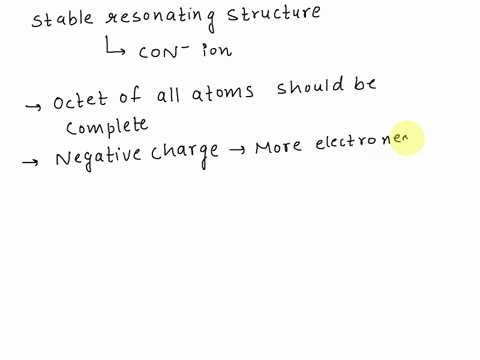 stable resonating structure
↳ CON⁻ ion
→ Octet of all atoms should be
complete
→ Negative charge → More electronen